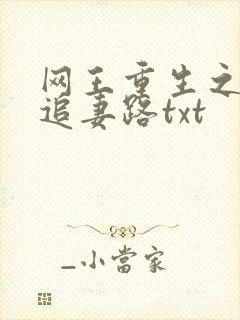 网王重生之
追妻路txt
_小當家